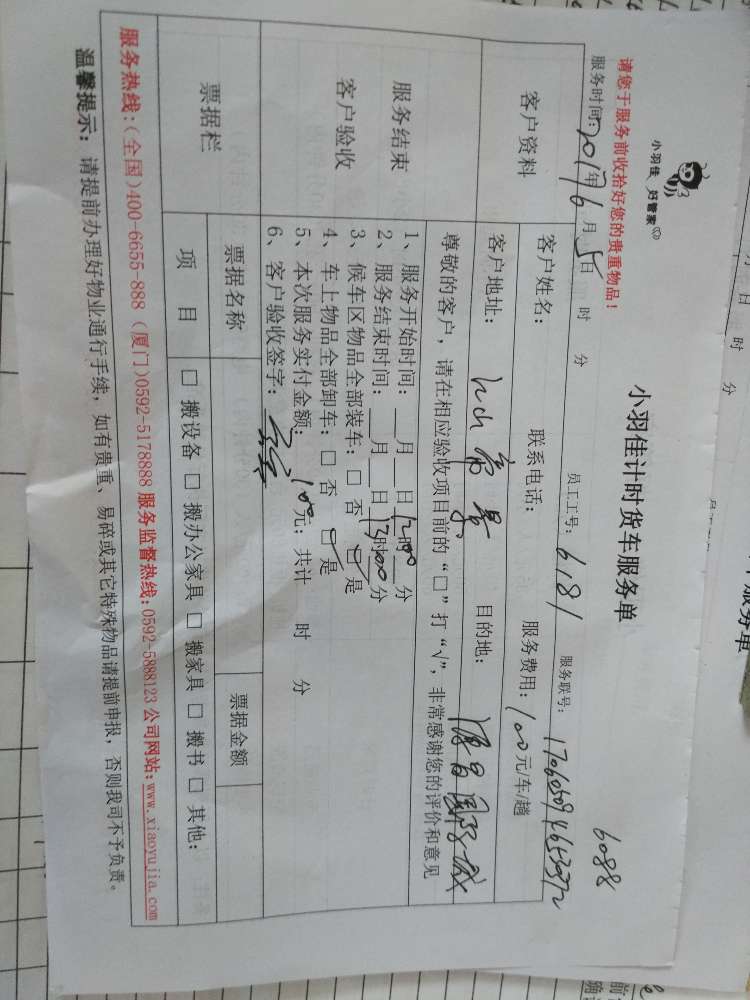 小羽佳 好管家
小羽佳计时货车服务单
6088
请您于服务前收拾好您的贵重物品！
服务时间：2017年6月5日 时 分 员工工号：6181 服务联号：
客户资料 客户姓名： 联系电话： 服务费用：100元/车/趟
客户地址： 目的地：
尊敬的客户，请在相应验收项目前的“□”打“√”，非常感谢您的评价和意见
服务结束
客户验收
1、服务开始时间： 月 日12时00分
2、服务结束时间： 月 日13时00分
3、候车区物品全部装车：□ 否 □ 是
4、车上物品全部卸车：□ 否 □ 是
5、本次服务实付金额：100元；共计 时 分
6、客户验收签字：
票据栏 票据名称 票据金额
项 目 □ 搬设备 □ 搬办公家具 □ 搬家具 □ 搬书 □ 其他：
服务热线：（全国）400-6655-888（厦门）0592-5178888 服务监督热线：0592-5888123 公司网站：www.xiaoyujia.com
温馨提示：请提前办理好物业通行手续，如有贵重、易碎或其它特殊物品请提前申报，否则我司不予负责。